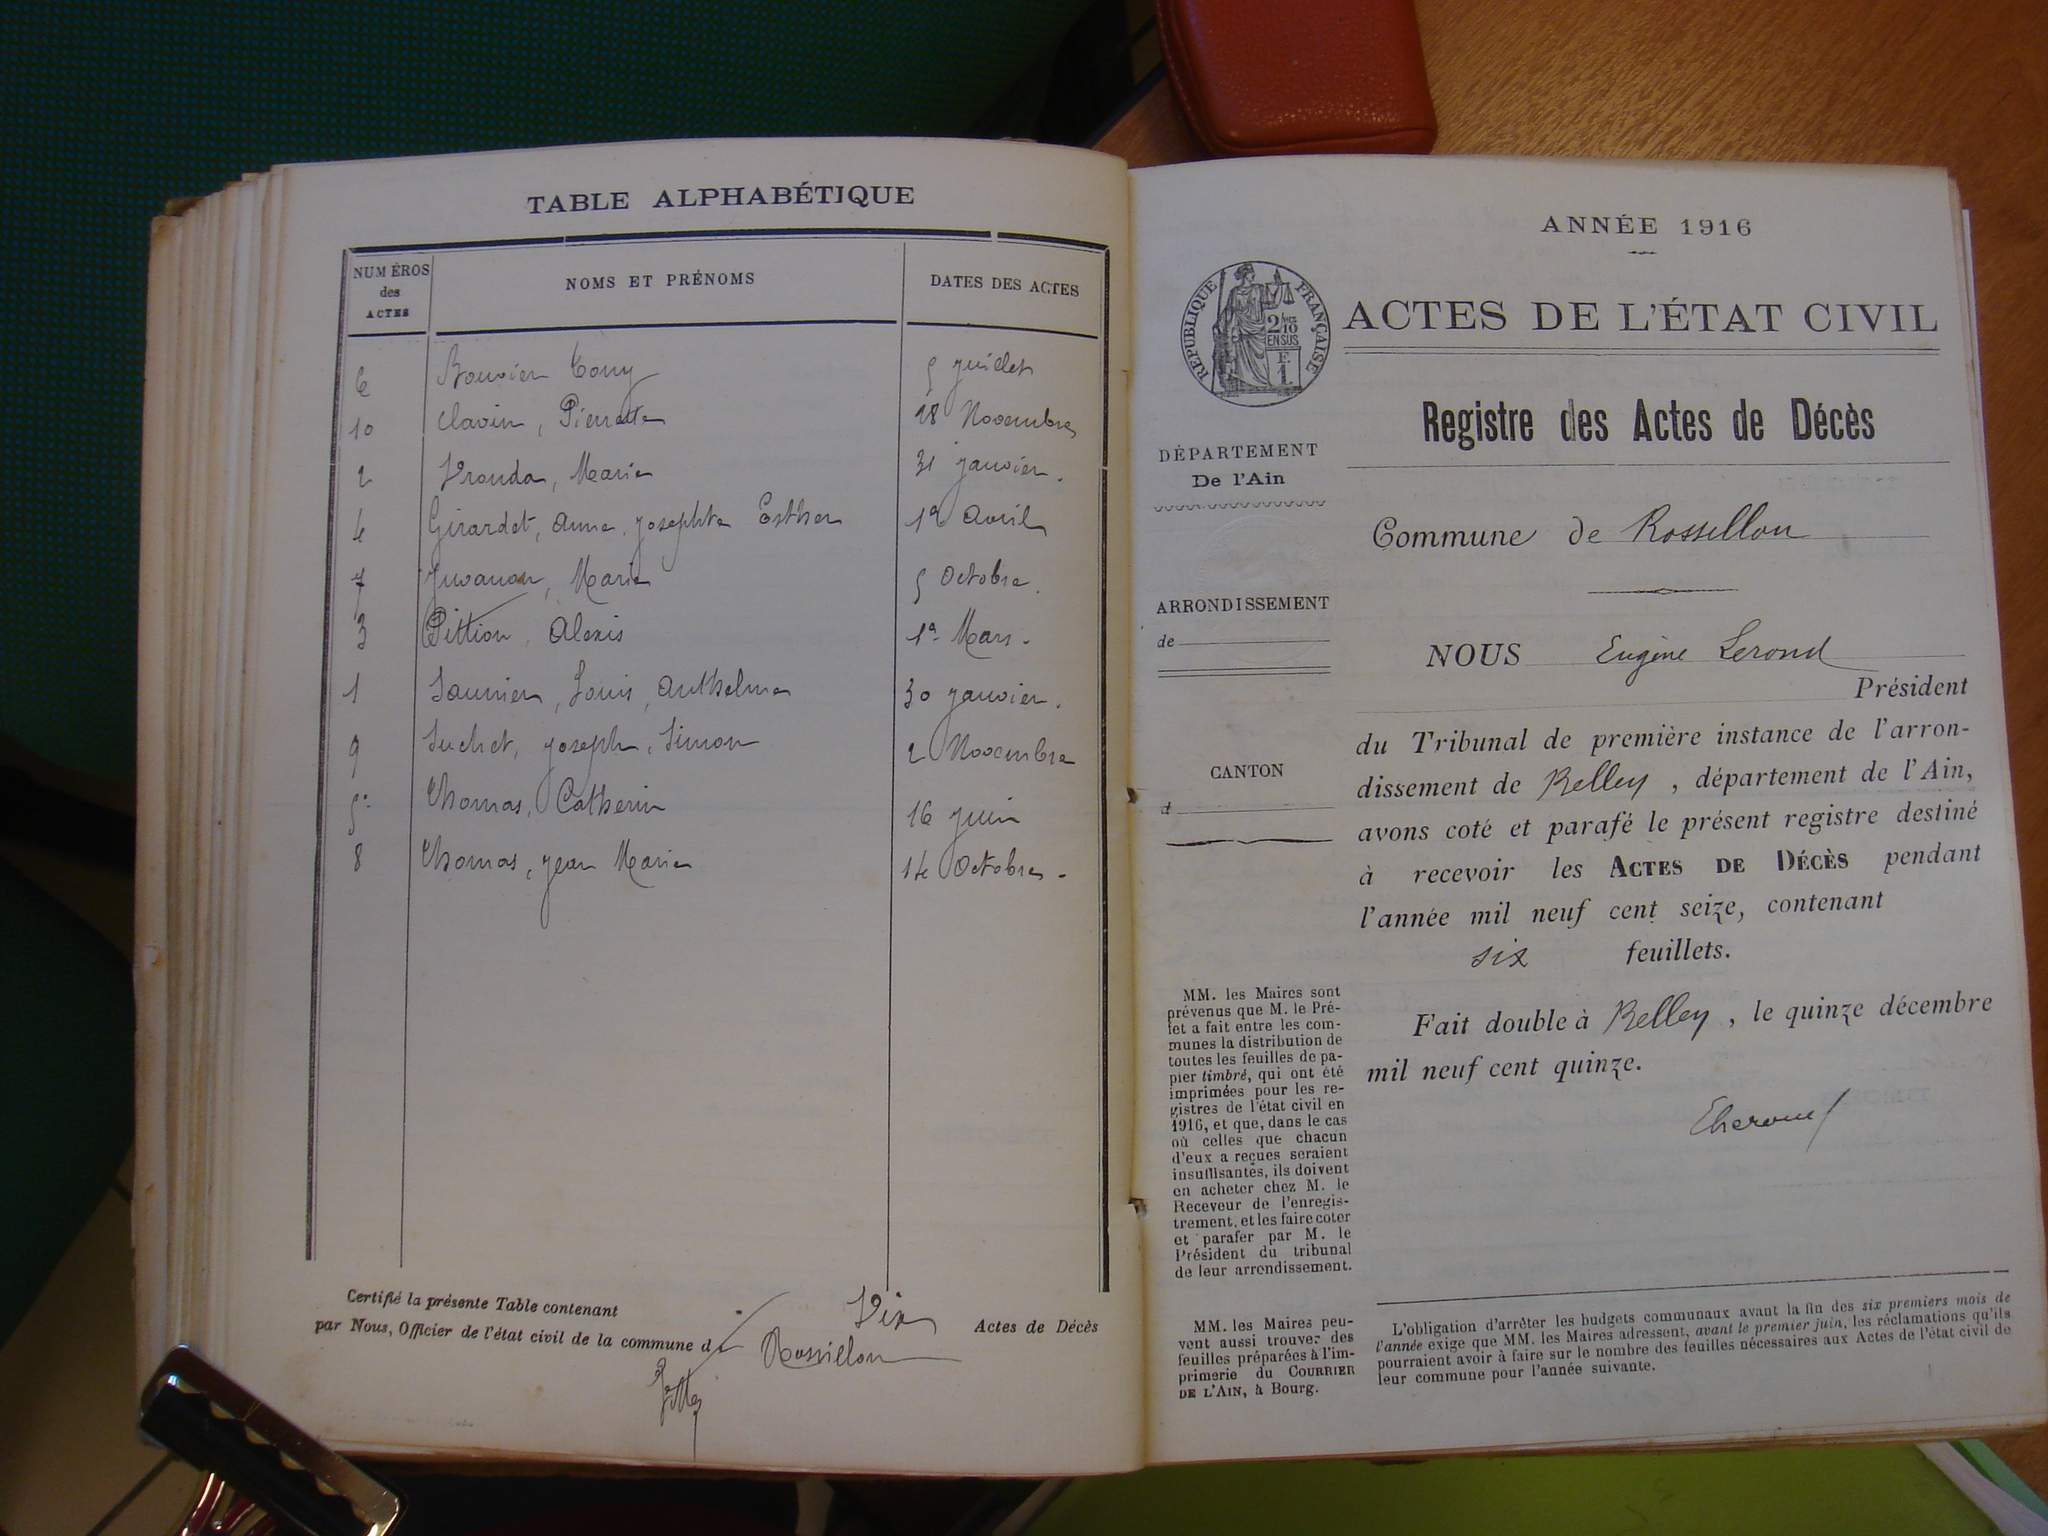 TABLE ALPHABÉTIQUE
NUMÉROS des ACTES NOMS ET PRÉNOMS DATES DES ACTES
6 Bouvier Tony 5 Juillet
10 Clavin, Pierrette 18 Novembre
2 Marie 31 janvier.
4 Girardet, Anne, Josephte Esther 12 Avril
7 Juvanon, Marie 5 Octobre.
3 Pittion, Alexis 12 Mars.
1 Saunier, Louis, Anthelme 30 janvier.
9 Suchet, Joseph, Simon 2 Novembre
5 Thomas, Catherin 16 Juin
8 Thomas, Jean Marie 14 Octobre.
Certifié la présente Table contenant Dix Actes de Décès
par Nous, Officier de l'état civil de la commune de Rossillon
ANNÉE 1916
RÉPUBLIQUE FRANÇAISE
2/10
EN SUS
F.
1
ACTES DE L'ÉTAT CIVIL
Registre des Actes de Décès
DÉPARTEMENT
De l'Ain
Commune de Rossillon
ARRONDISSEMENT
de
NOUS Eugène Lerond
Président
du Tribunal de première instance de l'arron-
dissement de Belley, département de l'Ain,
avons coté et parafé le présent registre destiné
à recevoir les ACTES DE DÉCÈS pendant
l'année mil neuf cent seize, contenant
six feuillets.
CANTON
d
Fait double à Belley, le quinze décembre
mil neuf cent quinze.
MM. les Maires sont
prévenus que M. le Pré-
fet a fait entre les com-
munes la distribution de
toutes les feuilles de pa-
pier timbré, qui ont été
imprimées pour les re-
gistres de l'état civil en
1916, et que, dans le cas
où celles que chacun
d'eux a reçues seraient
insuffisantes, ils doivent
en acheter chez M. le
Receveur de l'enregis-
trement, et les faire coter
et parafer par M. le
Président du tribunal
de leur arrondissement.
MM. les Maires peu-
vent aussi trouver des
feuilles préparées à l'im-
primerie du COURRIER
DE L'AIN, à Bourg.
L'obligation d'arrêter les budgets communaux avant la fin des six premiers mois de
l'année exige que MM. les Maires adressent, avant le premier juin, les réclamations qu'ils
pourraient avoir à faire sur le nombre des feuilles nécessaires aux Actes de l'état civil de
leur commune pour l'année suivante.